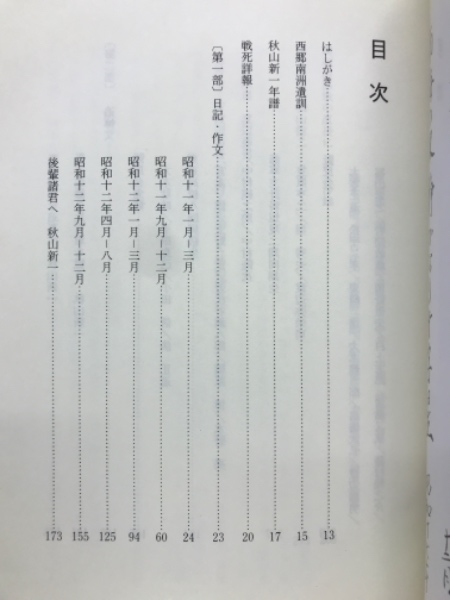 目次
はしがき……13
西郷南洲遺訓……15
秋山新一年譜……17
戦死詳報……20
〔第一部〕日記・作文……23
昭和十一年一月－三月……24
昭和十一年九月－十二月……60
昭和十二年一月－三月……94
昭和十二年四月－八月……125
昭和十二年九月－十二月……155
後輩諸君へ　秋山新一……173